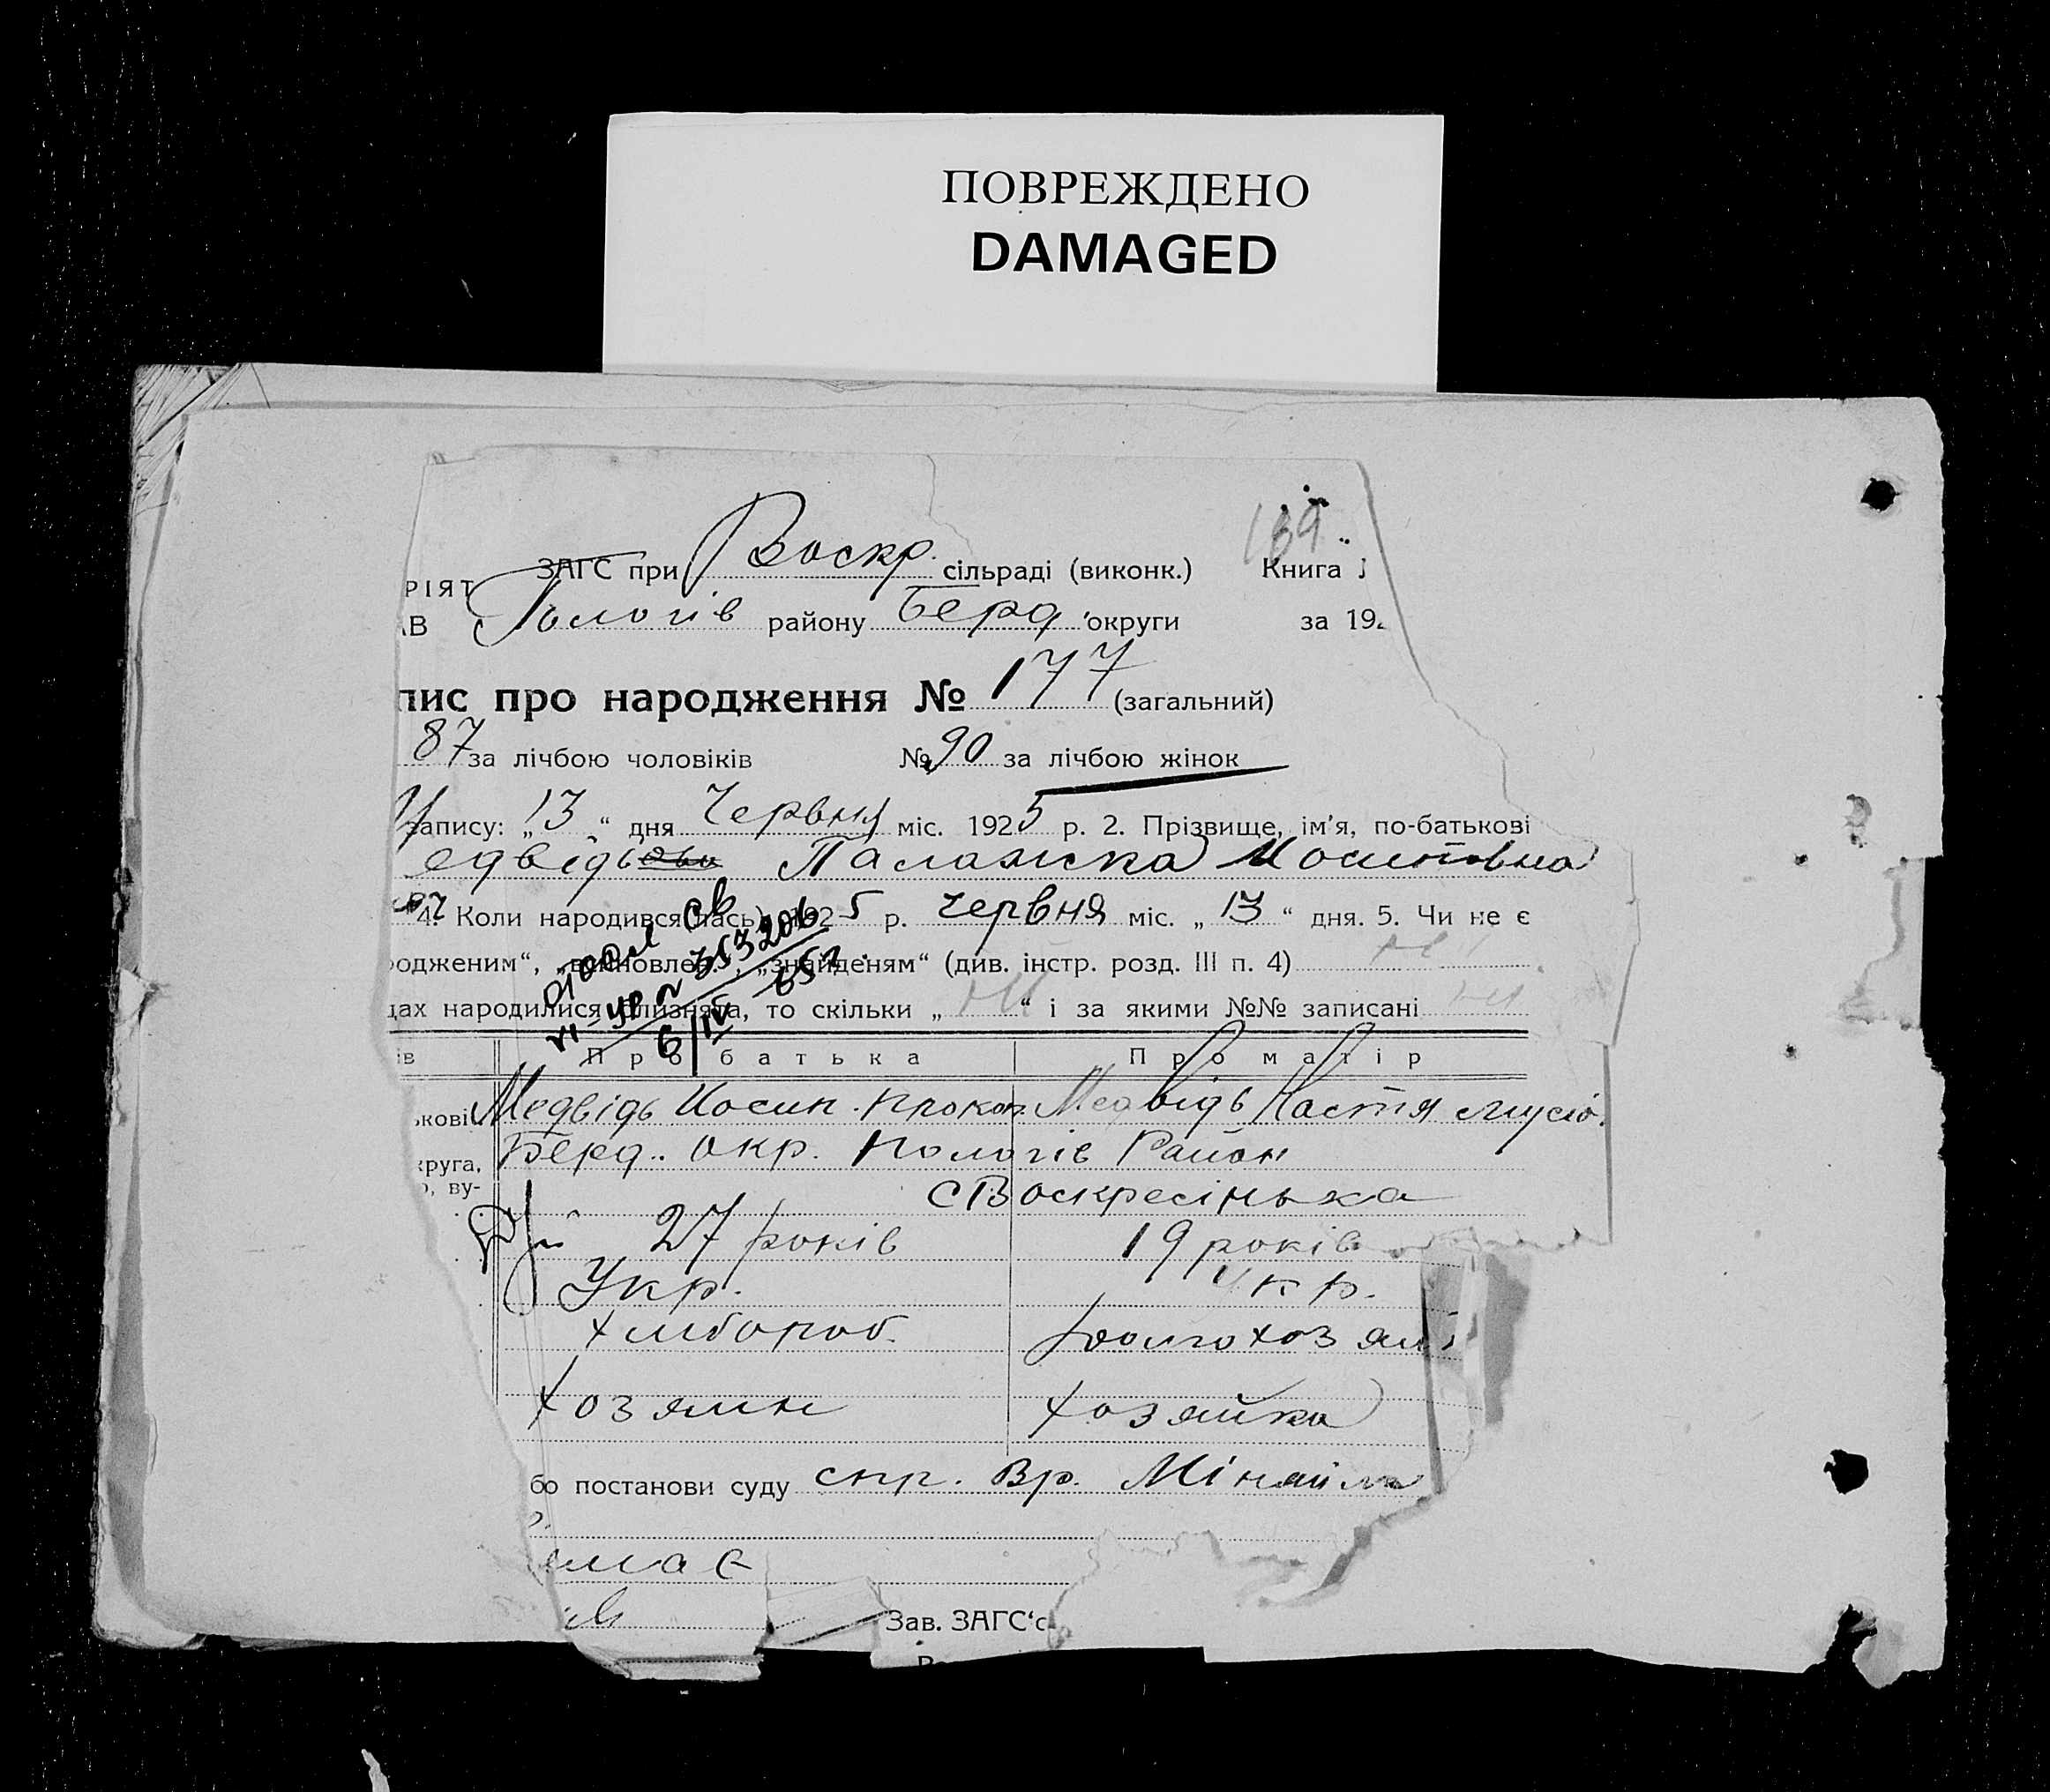 ПОВРЕЖДЕНО
DAMAGED
139
ЗАГС при Воскр. сільраді (виконк.) Книга
РІЯТ
АВ Пологів району Берд. округи за 192
пис про народження № 177 (загальний)
87 за лічбою чоловіків № 90 за лічбою жінок
запису: „13“ дня Червня міс. 1925 р. 2. Прізвище, ім'я, по-батькові
едвідь Палажка Иосиповна
4. Коли народився(лась) 1925 р. червня міс. „13“ дня. 5. Чи не є
родженим“, „вимовлен. „знайденям“ (див. інстр. розд. III п. 4) ні
дах народилися близнята, то скільки „ні“ і за якими №№ записані ні
VI-УР № 353206
6/IV 65 г.
ів Про батька Про матір
ькові Медвідь Иосип. Прокоп. Медвідь Настя Мусіо.
круга, Берд. окр. Пологів Район
о, ву-
с Воскресінька
27 років 19 років
Укр. Укр.
хлібороб. домохозяй
хозяин хозяйка
бо постанови суду спр. Вр.
має
Зав. ЗАГС'о